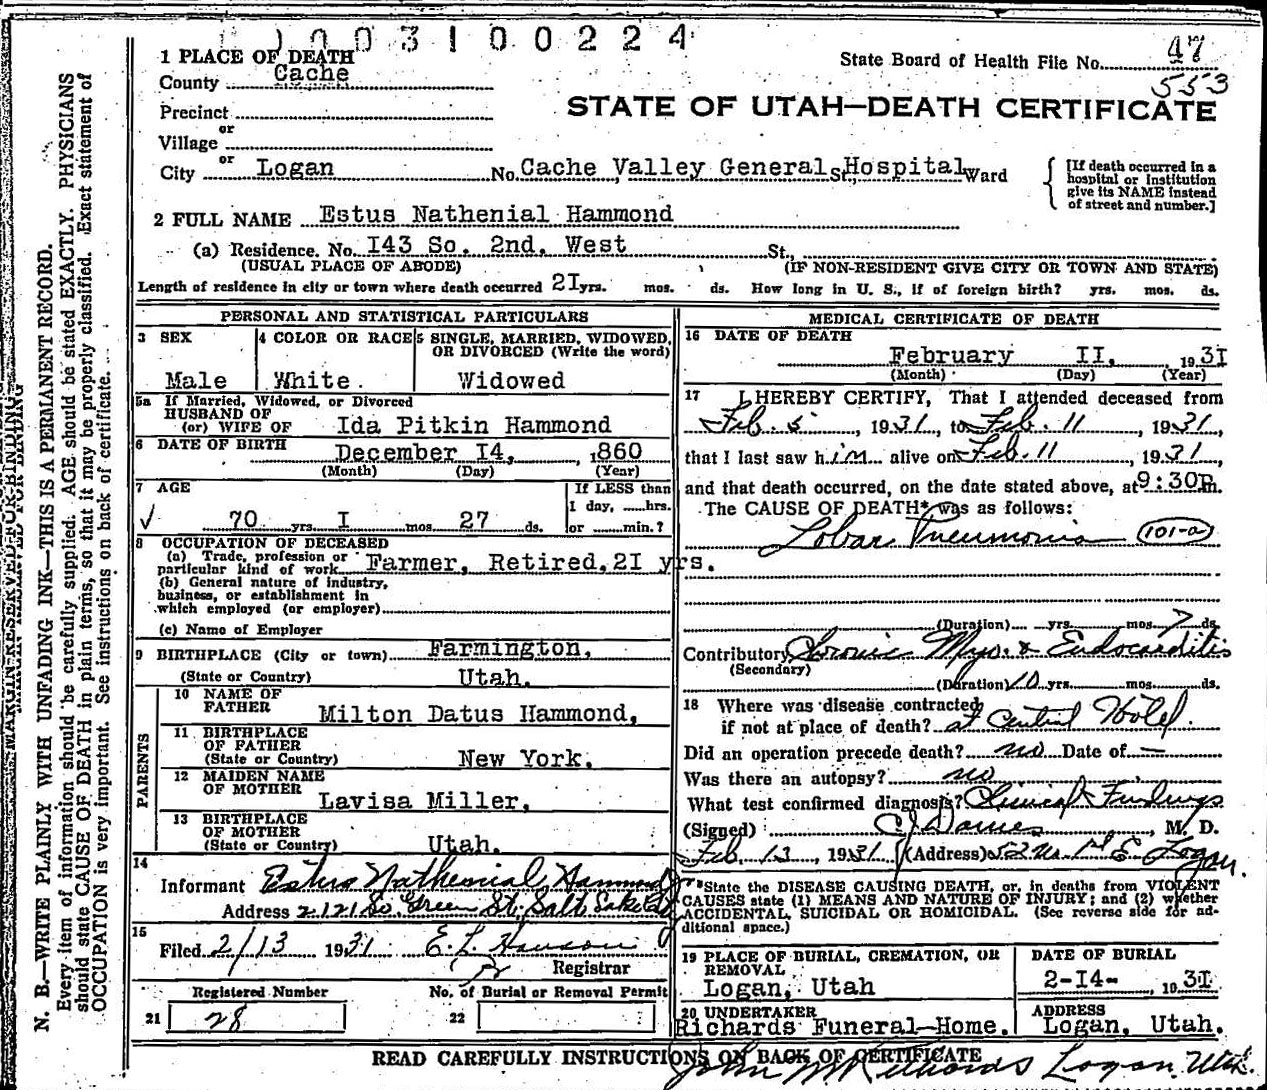 1 0 0 3 1 0 0 2 2 4
State Board of Health File No. 47
553
STATE OF UTAH—DEATH CERTIFICATE
1 PLACE OF DEATH
County Cache
Precinct
or
Village
or
City Logan No. Cache Valley General St. Hospital Ward
[If death occurred in a hospital or Institution give its NAME instead of street and number.]
2 FULL NAME Estus Nathenial Hammond
(a) Residence. No. I43 So. 2nd. West St.,
(USUAL PLACE OF ABODE) (IF NON-RESIDENT GIVE CITY OR TOWN AND STATE)
Length of residence in city or town where death occurred 2I yrs. mos. ds. How long in U. S., if of foreign birth? yrs. mos. ds.
PERSONAL AND STATISTICAL PARTICULARS
3 SEX
Male
4 COLOR OR RACE
White
5 SINGLE, MARRIED, WIDOWED,
OR DIVORCED (Write the word)
Widowed
5a If Married, Widowed, or Divorced
HUSBAND OF
(or) WIFE OF Ida Pitkin Hammond
6 DATE OF BIRTH December I4, 1860
(Month) (Day) (Year)
7 AGE
70 yrs I mos. 27 ds.
If LESS than
1 day, ......hrs.
or ......min.?
8 OCCUPATION OF DECEASED
(a) Trade, profession or
particular kind of work Farmer, Retired, 2I yrs.
(b) General nature of industry,
business, or establishment in
which employed (or employer)
(c) Name of Employer
9 BIRTHPLACE (City or town) Farmington,
(State or Country) Utah.
PARENTS
10 NAME OF
FATHER Milton Datus Hammond,
11 BIRTHPLACE
OF FATHER
(State or Country) New York.
12 MAIDEN NAME
OF MOTHER Lavisa Miller,
13 BIRTHPLACE
OF MOTHER
(State or Country) Utah.
14
Informant Estus Nathenial Hammond
Address 2121 So. Green St. Salt Lake
15
Filed 2/13 1931 E. L. Hanson
Registrar
Registered Number
21 28
No. of Burial or Removal Permit
22
MEDICAL CERTIFICATE OF DEATH
16 DATE OF DEATH
February II, 1931
(Month) (Day) (Year)
17 I HEREBY CERTIFY, That I attended deceased from
Feb. 5, 1931, to Feb. 11, 1931,
that I last saw him alive on Feb. 11, 1931,
and that death occurred, on the date stated above, at 9:30P.m.
The CAUSE OF DEATH* was as follows:
Lobar Pneumonia (101-a)
(Duration) yrs. mos. 7 ds.
Contributory Chronic Myo. & Endocarditis
(Secondary)
(Duration) 10 yrs. mos. ds.
18 Where was disease contracted
if not at place of death? at Central Hotel.
Did an operation precede death? no Date of —
Was there an autopsy? no
What test confirmed diagnosis? Clinical Findings
(Signed) , M. D.
Feb. 13, 1931 (Address) 52 W. 1st E. Logan.
*State the DISEASE CAUSING DEATH, or, in deaths from VIOLENT
CAUSES state (1) MEANS AND NATURE OF INJURY; and (2) whether
ACCIDENTAL, SUICIDAL OR HOMICIDAL. (See reverse side for ad-
ditional space.)
19 PLACE OF BURIAL, CREMATION, OR
REMOVAL
Logan, Utah
DATE OF BURIAL
2-I4- 1931
20 UNDERTAKER
Richards Funeral Home.
ADDRESS
Logan, Utah.
READ CAREFULLY INSTRUCTIONS ON BACK OF CERTIFICATE
John M Richards Logan, Utah.
MARGIN RESERVED FOR BINDING
N. B.—WRITE PLAINLY WITH UNFADING INK—THIS IS A PERMANENT RECORD.
Every item of information should be carefully supplied. AGE should be stated EXACTLY. PHYSICIANS
should state CAUSE OF DEATH in plain terms, so that it may be properly classified. Exact statement of
OCCUPATION is very important. See instructions on back of certificate.